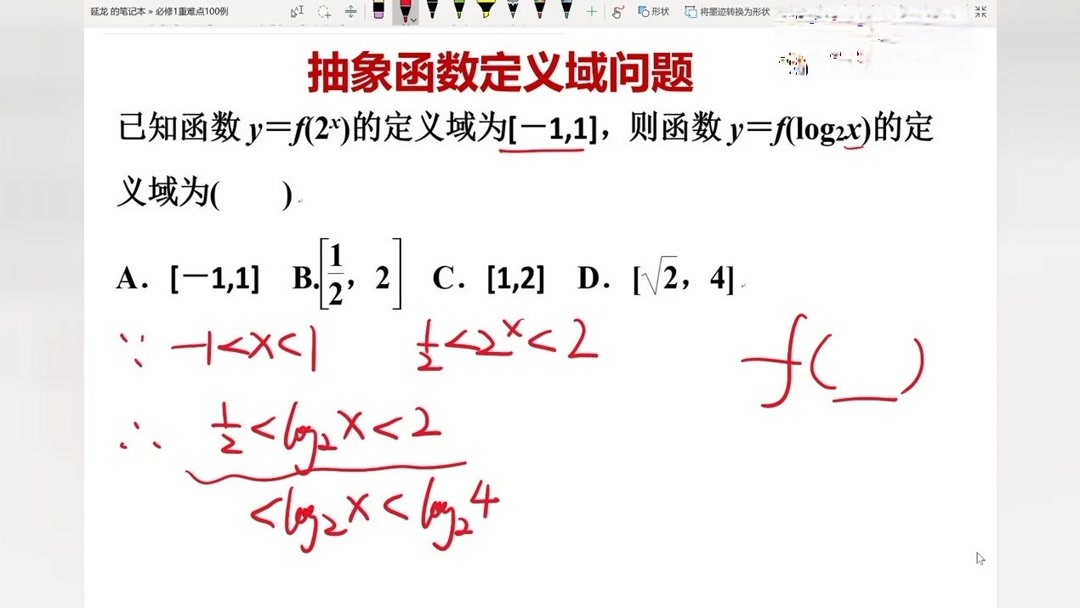 延龙 的笔记本 » 必修1重难点100例
形状 将墨迹转换为形状
抽象函数定义域问题
已知函数 y＝f(2ˣ)的定义域为[－1,1]，则函数 y＝f(log₂x)的定
义域为(　　).
A．[－1,1]　B.[1/2，2]　C．[1,2]　D．[√2，4].
∵ -1<x<1　1/2<2ˣ<2　f(　)
∴ 1/2<log₂x<2
<log₂x<log₂4